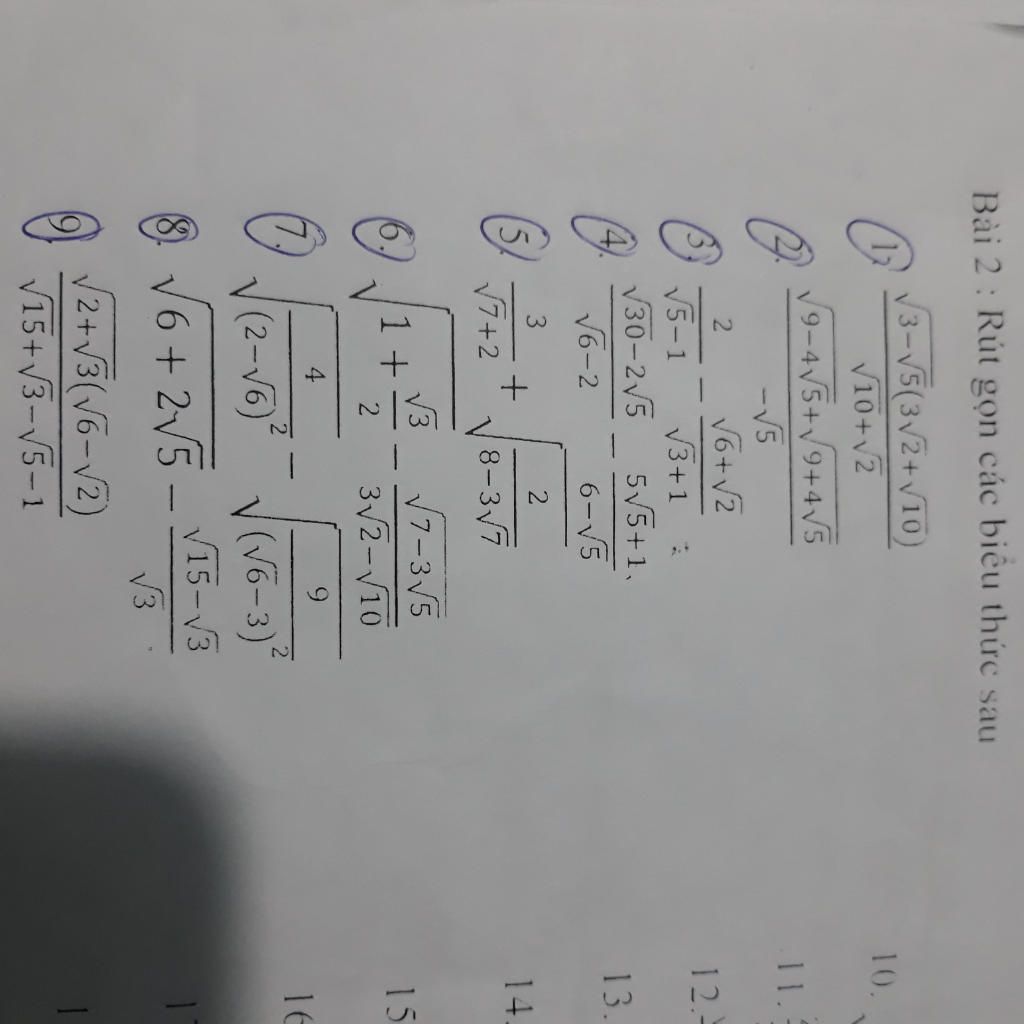 Bài 2 : Rút gọn các biểu thức sau
1. \frac{\sqrt{3-\sqrt{5}}(3\sqrt{2}+\sqrt{10})}{\sqrt{10}+\sqrt{2}}
2. \frac{\sqrt{9-4\sqrt{5}}+\sqrt{9+4\sqrt{5}}}{-\sqrt{5}}
3. \frac{2}{\sqrt{5}-1} - \frac{\sqrt{6}+\sqrt{2}}{\sqrt{3}+1}
4. \frac{\sqrt{30}-2\sqrt{5}}{\sqrt{6}-2} - \frac{5\sqrt{5}+1}{6-\sqrt{5}}
5. \frac{3}{\sqrt{7}+2} + \sqrt{\frac{2}{8-3\sqrt{7}}}
6. \sqrt{1+\frac{\sqrt{3}}{2}} - \frac{\sqrt{7-3\sqrt{5}}}{3\sqrt{2}-\sqrt{10}}
7. \sqrt{\frac{4}{(2-\sqrt{6})^2}} - \sqrt{\frac{9}{(\sqrt{6}-3)^2}}
8. \sqrt{6+2\sqrt{5}} - \frac{\sqrt{15}-\sqrt{3}}{\sqrt{3}}
9. \frac{\sqrt{2+\sqrt{3}}(\sqrt{6}-\sqrt{2})}{\sqrt{15}+\sqrt{3}-\sqrt{5}-1}
10.
11.
12.
13.
14.
15
16